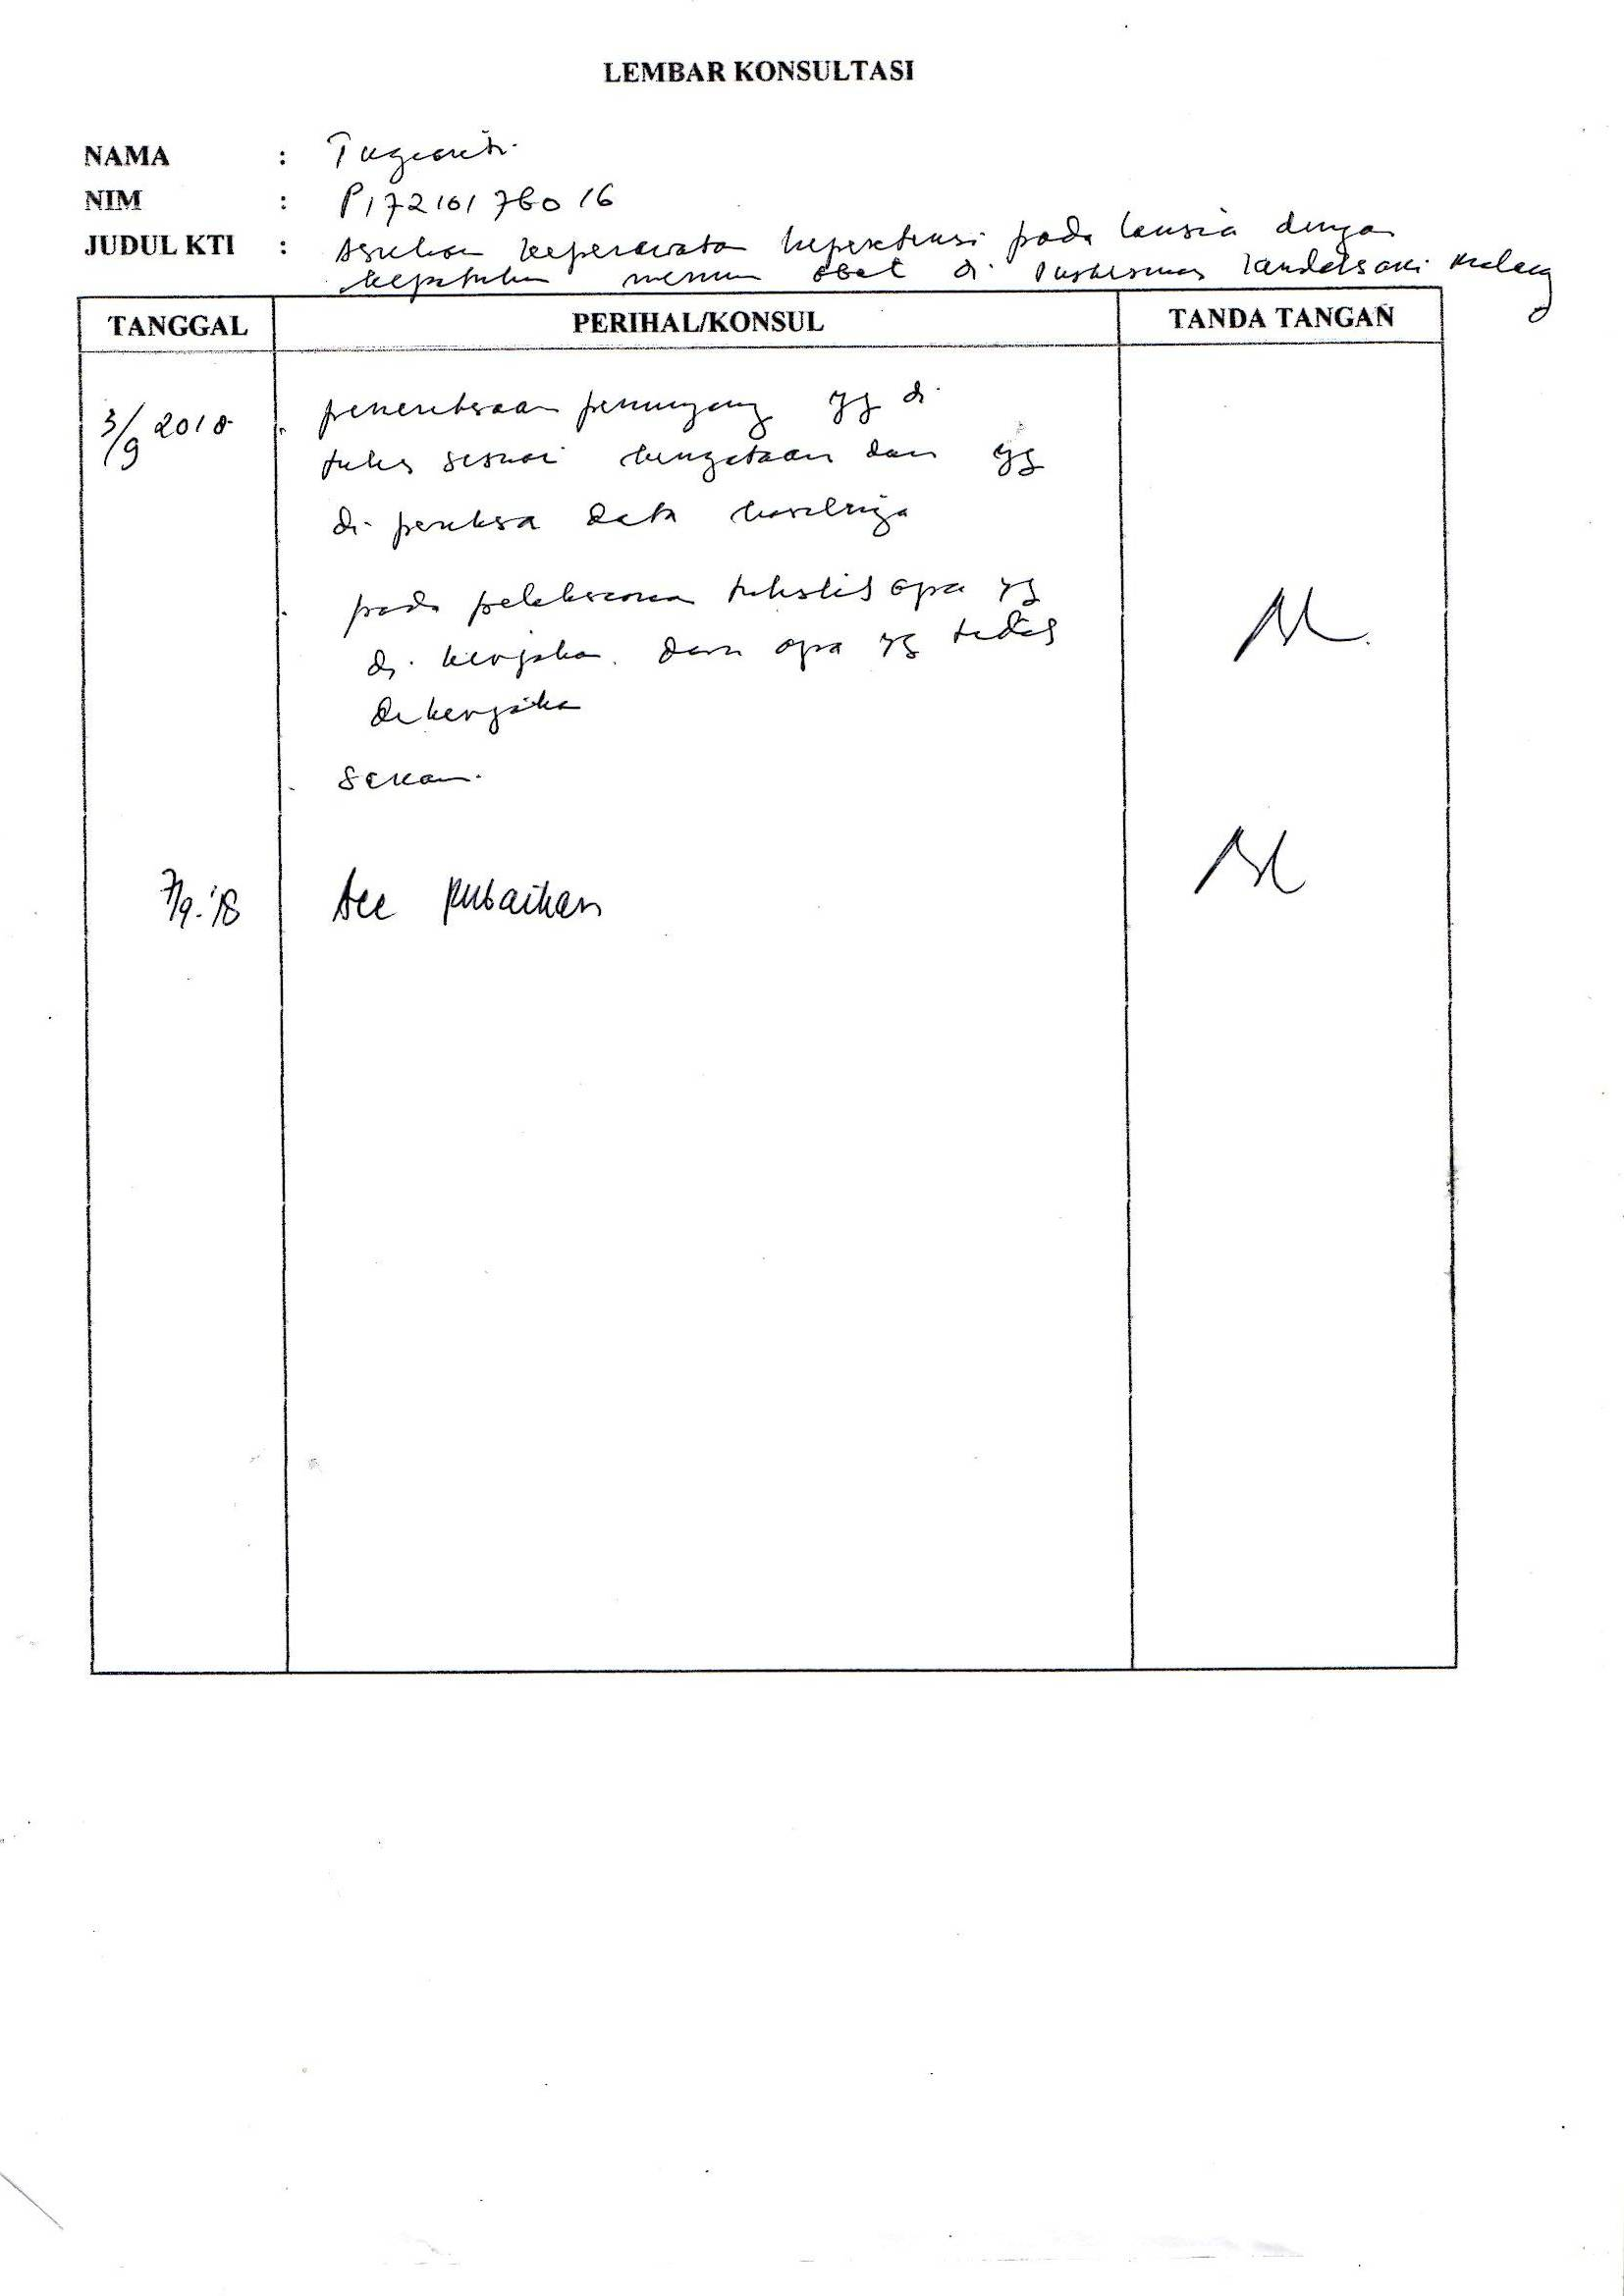 LEMBAR KONSULTASI
NAMA : Tugiarti
NIM : P17210176016
JUDUL KTI : Asuhan keperawatan hipertensi pada lansia dengan
kepatuhan minum obat di Puskesmas Kendalsari Malang
TANGGAL PERIHAL/KONSUL TANDA TANGAN
3/9 2018 pemeriksaan penunjang yg di
tulis sesuai kenyataan dan yg
di periksa data hasilnya
pada pelaksanaan tulislah apa yg
di kerjakan dan apa yg tidak
dikerjakan
Saran.
7/9-'18 Acc perbaikan